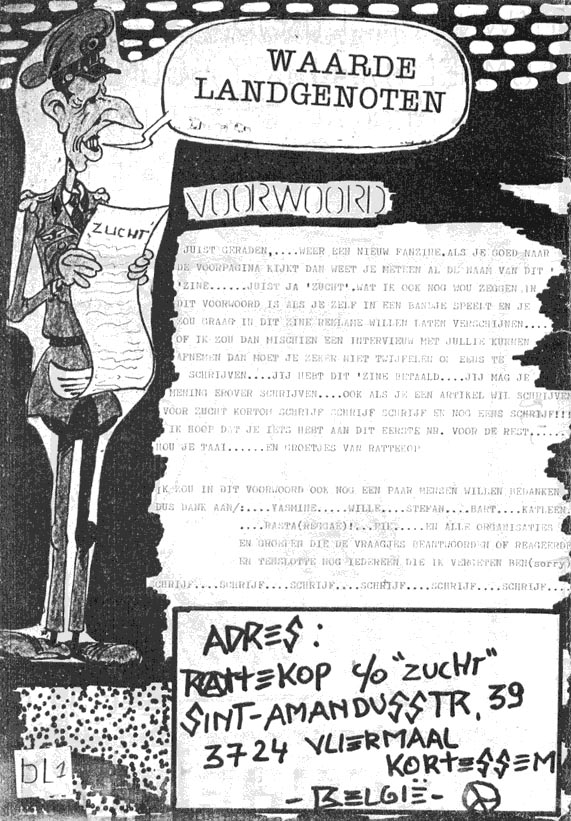 WAARDE
LANDGENOTEN
VOORWOORD
ZUCHT
JUIST GERADEN,....WEER EEN NIEUW FANZINE.ALS JE GOED NAAR
DE VOORPAGINA KIJKT DAN WEET JE METEEN AL DE NAAM VAN DIT '
'ZINE......JUIST JA 'ZUCHT'.WAT IK OOK NOG WOU ZEGGEN IN
DIT VOORWOORD IS ALS JE ZELF IN EEN BANDJE SPEELT EN JE
ZOU GRAAG IN DIT ZINE REKLAME WILLEN LATEN VERSCHIJNEN....
OF IK ZOU DAN MISCHIEN EEN INTERVIEUW MET JULLIE KUNNEN
AFNEMEN DAN MOET JE ZEKER NIET TWIJFELEN OM EENS TE
SCHRIJVEN....JIJ HEBT DIT 'ZINE BETAALD....JIJ MAG JE
MENING EROVER SCHRIJVEN....OOK ALS JE EEN ARTIKEL WIL SCHRIJVEN
VOOR ZUCHT KORTOM SCHRIJF SCHRIJF SCHRIJF EN NOG EENS SCHRIJF!!!
IK HOOP DAT JE IETS HEBT AAN DIT EERSTE NR. VOOR DE REST.....
HOU JE TAAI......EN GROETJES VAN RATTEKOP
IK ZOU IN DIT VOORWOORD OOK NOG EEN PAAR MENSEN WILLEN BEDANKEN
DUS DANK AAN/:....YASMINE.....WILLE....STEFAN....BART....KATLEEN
....RASTA(REGGAE)!...PIE.....EN ALLE ORGANISATIES
EN GROEPEN DIE DE VRAAGJES BEANTWOORDEN OF REAGEERDE
EN TENSLOTTE NOG IEDEREEN DIE IK VERGETEN BEN(sorry)
SCHRIJF....SCHRIJF....SCHRIJF....SCHRIJF....SCHRIJF....SCHRIJF...
ADRES:
RATTEKOP c/o "ZUCHT"
SINT-AMANDUSSTR. 39
3724 VLIERMAAL
KORTESSEM
- BELGIË -
bL1